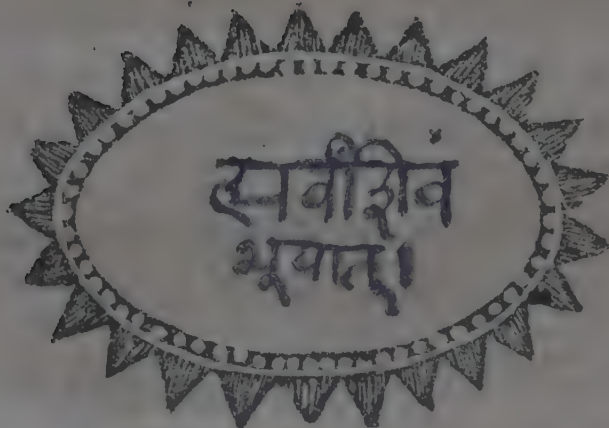 सर्वांशिवं
भूयात्।